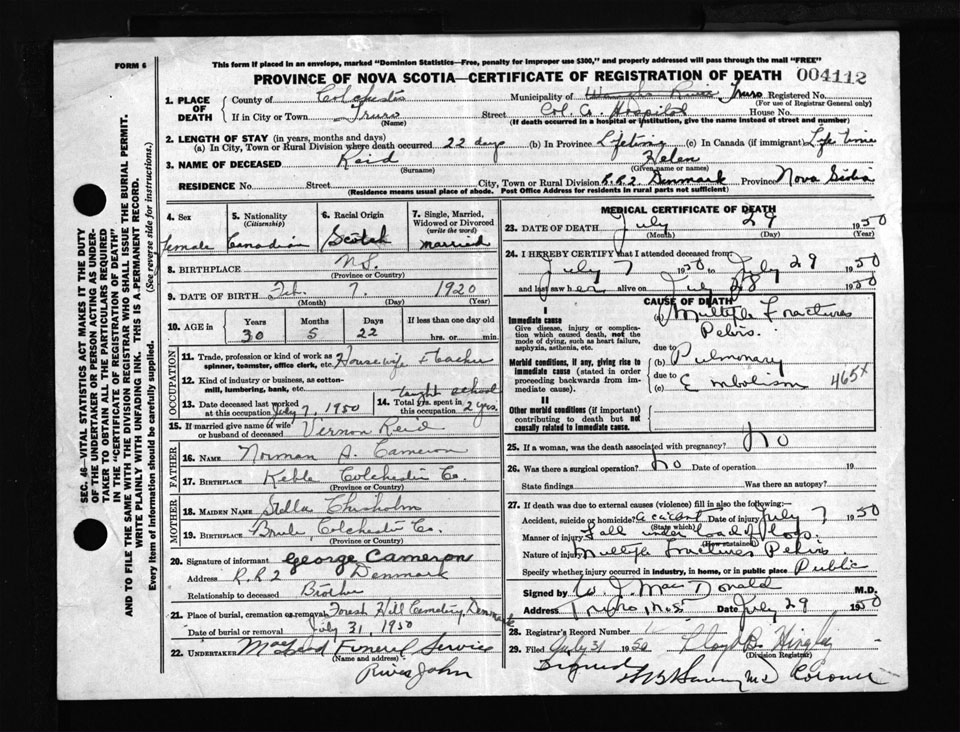 This form if placed in an envelope, marked "Dominion Statistics—Free, penalty for improper use $300," and properly addressed will pass through the mail "FREE"
FORM 6
PROVINCE OF NOVA SCOTIA—CERTIFICATE OF REGISTRATION OF DEATH 004112
1. PLACE OF DEATH
County of Colchester Municipality of Truro Registered No.
(For use of Registrar General only)
If in City or Town Truro Street Col. Co. Hospital House No.
(Name) (If death occurred in a hospital or institution, give the name instead of street and number)
2. LENGTH OF STAY (in years, months and days)
(a) In City, Town or Rural Division where death occurred 22 days (b) In Province Lifetime (c) In Canada (if immigrant) Life time
3. NAME OF DECEASED Reid Helen
(Surname) (Given name or names)
RESIDENCE No. Street City, Town or Rural Division R.R.2. Denmark Province Nova Scotia
(Residence means usual place of abode. Post Office Address for residents in rural parts not sufficient)
4. Sex
female
5. Nationality (Citizenship)
Canadian
6. Racial Origin
Scotch
7. Single, Married, Widowed or Divorced (write the word)
married
8. BIRTHPLACE N.S.
(Province or Country)
9. DATE OF BIRTH Feb. 7. 1920
(Month) (Day) (Year)
10. AGE in Years Months Days If less than one day old
30 5 22 hrs. or min.
OCCUPATION
11. Trade, profession or kind of work as spinner, teamster, office clerk, etc. Housewife & Teacher
12. Kind of industry or business, as cotton-mill, lumbering, bank, etc. taught school
13. Date deceased last worked at this occupation July 7, 1950
14. Total yrs. spent in this occupation 2 yrs.
15. If married give name of wife or husband of deceased Vernon Reid
FATHER
16. NAME Norman A. Cameron
17. BIRTHPLACE Keble Colchester Co.
(Province or Country)
MOTHER
18. MAIDEN NAME Stella Chisholm
19. BIRTHPLACE Brule, Colchester Co.
(Province or Country)
20. Signature of informant George Cameron
Address R.R 2 Denmark
Relationship to deceased Brother
21. Place of burial, cremation or removal Forest Hill Cemetery, Denmark
Date of burial or removal July 31, 1950
22. UNDERTAKER MacLeod Funeral Service
(Name and address)
River John
MEDICAL CERTIFICATE OF DEATH
23. DATE OF DEATH July 29 1950
(Month) (Day) (Year)
24. I HEREBY CERTIFY that I attended deceased from:
July 7 1950 to July 29 1950
and last saw her alive on July 28 1950
CAUSE OF DEATH
I
Immediate cause
Give disease, injury or complication which caused death, not the mode of dying, such as heart failure, asphyxia, asthenia, etc.
(a) Multiple Fractures Pelvis.
due to
Morbid conditions, if any, giving rise to immediate cause (stated in order proceeding backwards from immediate cause).
(b) Pulmonary
due to
(c) Embolism 465X
II
Other morbid conditions (if important) contributing to death but not causally related to immediate cause.
25. If a woman, was the death associated with pregnancy? No
26. Was there a surgical operation? No Date of operation 19
State findings Was there an autopsy?
27. If death was due to external causes (violence) fill in also the following:—
Accident, suicide or homicide? accident Date of injury July 7 1950
(State which)
Manner of injury Fall under load of
(How sustained)
Nature of injury Multiple fractures Pelvis.
Specify whether injury occurred in industry, in home, or in public place Public
Signed by W. J. MacDonald M.D.
Address Truro N.S. Date July 29 1950
28. Registrar's Record Number
29. Filed July 31 1950 Lloyd B.
(Division Registrar)
Signed M.D. Coroner
SEC. 46—VITAL STATISTICS ACT MAKES IT THE DUTY
OF THE UNDERTAKER OR PERSON ACTING AS UNDER-
TAKER TO OBTAIN ALL THE PARTICULARS REQUIRED
IN THE "CERTIFICATE OF REGISTRATION OF DEATH"
AND TO FILE THE SAME WITH THE DIVISION REGISTRAR WHO SHALL ISSUE THE BURIAL PERMIT.
WRITE PLAINLY WITH UNFADING INK. THIS IS A PERMANENT RECORD.
Every item of information should be carefully supplied. (See reverse side for instructions.)